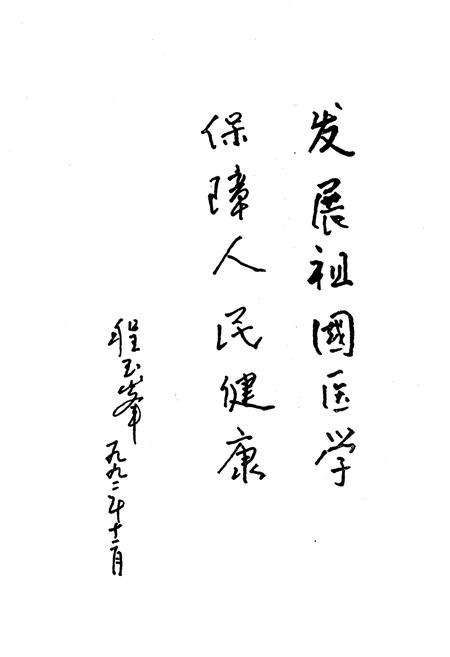 发展祖國医学
保障人民健康
程玉峯
一九九二年十二月